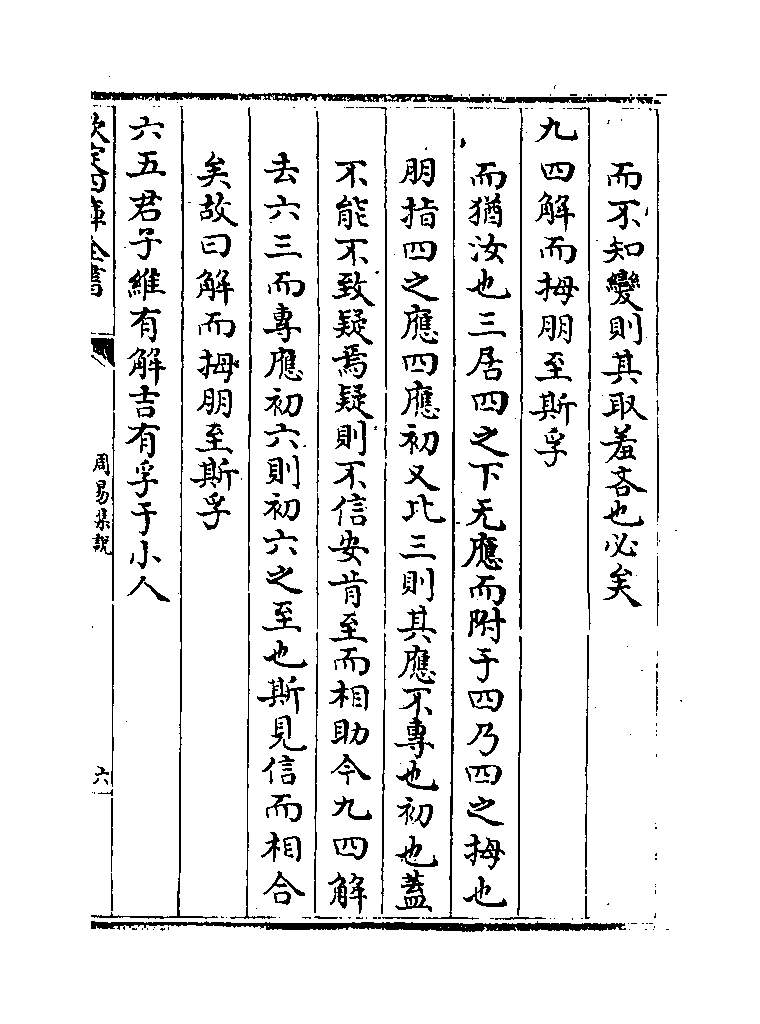 而不知變則其取羞吝也必矣
九四解而拇朋至斯孚
而猶汝也三居四之下无應而附于四乃四之拇也
朋指四之應四應初又比三則其應不專也初也蓋
不能不致疑焉疑則不信安肯至而相助今九四解
去六三而專應初六則初六之至也斯見信而相合
矣故曰解而拇朋至斯孚
六五君子維有解吉有孚于小人
欽定四庫全書
周易集說
六